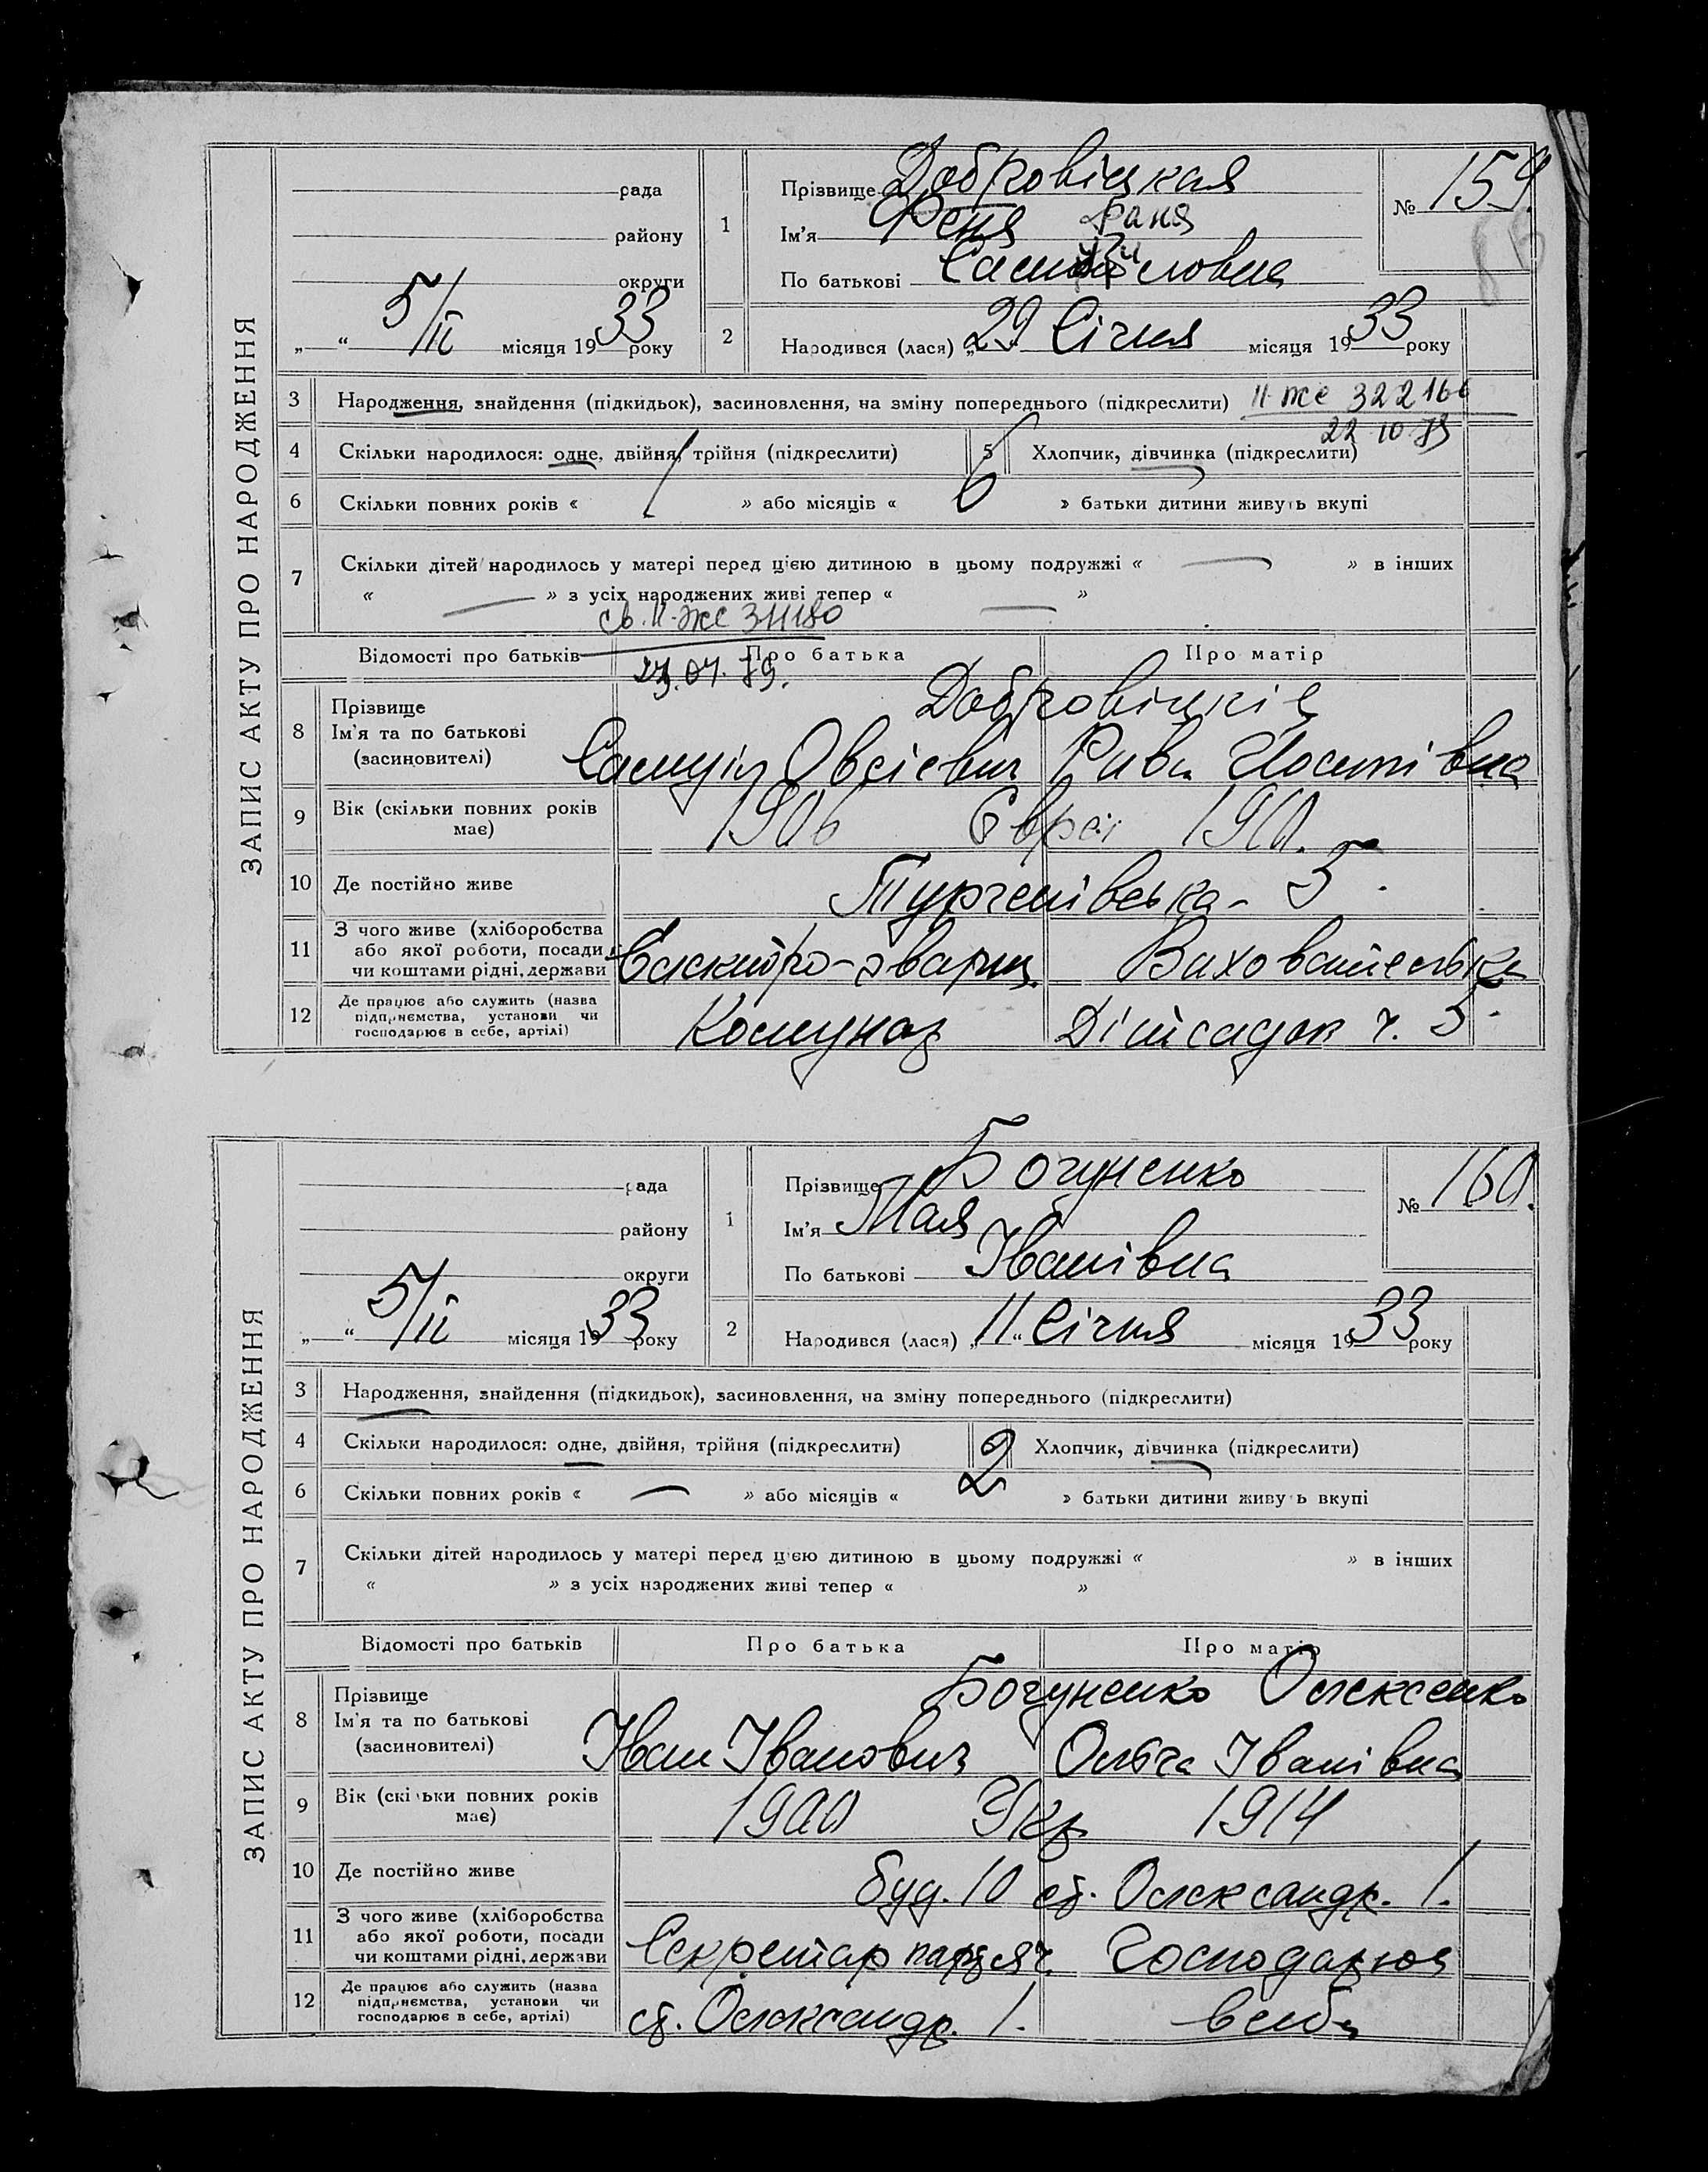 ЗАПИС АКТУ ПРО НАРОДЖЕННЯ
рада
району
округи
„ “ 5/II місяця 1933 року
1
Прізвище Добровіцкая
Ім'я Феня Фаня
По батькові Самуіловна
№ 159.
2
Народився (лася) „29 Січня місяця 1933 року
3 Народження, знайдення (підкидьок), засиновлення, на зміну попереднього (підкреслити) II-ЖС 322166
22 10 79
4 Скільки народилося: одне, двійня, трійня (підкреслити) 5 Хлопчик, дівчинка (підкреслити)
6 Скільки повних років « » або місяців « 6 » батьки дитини живуть вкупі
7 Скільки дітей народилось у матері перед цією дитиною в цьому подружжі « — » в інших
« — » з усіх народжених живі тепер « — »
св. II-ЖС
Відомості про батьків Про батька Про матір
79.
8 Прізвище
Ім'я та по батькові
(засиновителі)
Добровіцкіе
Самуіл Овсієвич Рива Йосипівна
9 Вік (скільки повних років має) 1906 Євреї 1910.
10 Де постійно живе Тургенівська - 5.
11 З чого живе (хліборобства
або якої роботи, посади
чи коштами рідні, держави
Електро-зварщ. Вихователька
12 Де працює або служить (назва
підприємства, установи чи
господарює в себе, артілі)
Комунар Дітсадок ч. 5.
ЗАПИС АКТУ ПРО НАРОДЖЕННЯ
рада
району
округи
„ “ 5/II місяця 1933 року
1
Прізвище Богуненко
Ім'я Мая
По батькові Іванівна
№ 160.
2
Народився (лася) „11“ Січня місяця 1933 року
3 Народження, знайдення (підкидьок), засиновлення, на зміну попереднього (підкреслити)
4 Скільки народилося: одне, двійня, трійня (підкреслити) Хлопчик, дівчинка (підкреслити)
6 Скільки повних років « — » або місяців « 2 » батьки дитини живуть вкупі
7 Скільки дітей народилось у матері перед цією дитиною в цьому подружжі « » в інших
« » з усіх народжених живі тепер « »
Відомості про батьків Про батька Про матір
8 Прізвище
Ім'я та по батькові
(засиновителі)
Богуненко Олексенко
Іван Іванович Ольга Іванівна
9 Вік (скільки повних років має) 1900 Укр 1914
10 Де постійно живе буд. 10 ст. Олександр. 1.
11 З чого живе (хліборобства
або якої роботи, посади
чи коштами рідні, держави
Секретар Господарює
12 Де працює або служить (назва
підприємства, установи чи
господарює в себе, артілі)
ст. Олександр. 1. в себе